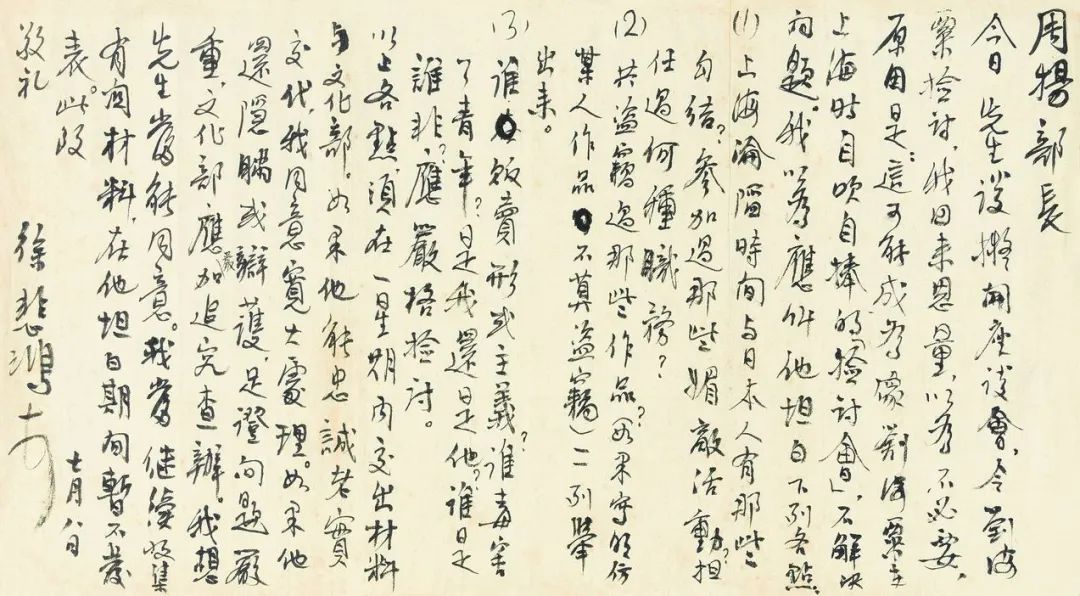 周揚部長
今日 先生談擬開座談會，令劉海
粟檢討，我回來思量，以為不必要，
原因是：這可能成為像劉海粟在
上海時自吹自捧的「檢討會」，不解决
问题。我以為應叫他坦白下列各點。
(1) 上海淪陷時间与日本人有那些
勾结？參加過那些媚敵活動？担
任過何種職務？
(2) 共盜竊過那些作品？如果寫明仿
某人作品 不算盜竊）一一列舉
出来。
(3) 誰 販賣形式主義？誰毒害
了青年？是我還是他？誰是
誰非？應嚴格檢讨。
以上各點須在一星期内交出材料
与文化部。如果他能忠誠老實
交代，我同意寬大處理。如果他
還隱瞞或辯護，足證问題嚴
重，文化部應嚴加追究查辦。我想
先生當能同意。我當继續收集
有関材料，在他坦白期间暫不發
表。此致
敬礼 徐悲鴻
七月八日